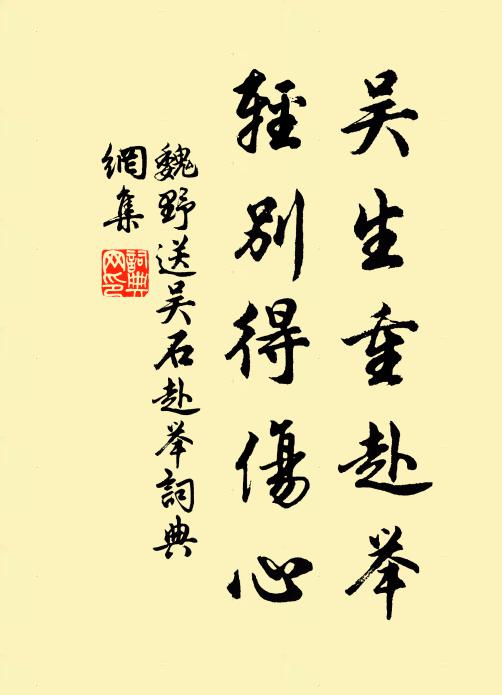 吴生重赴举
輕别得傷心
魏野送吴石赴举詞典
網集
詞典
网印